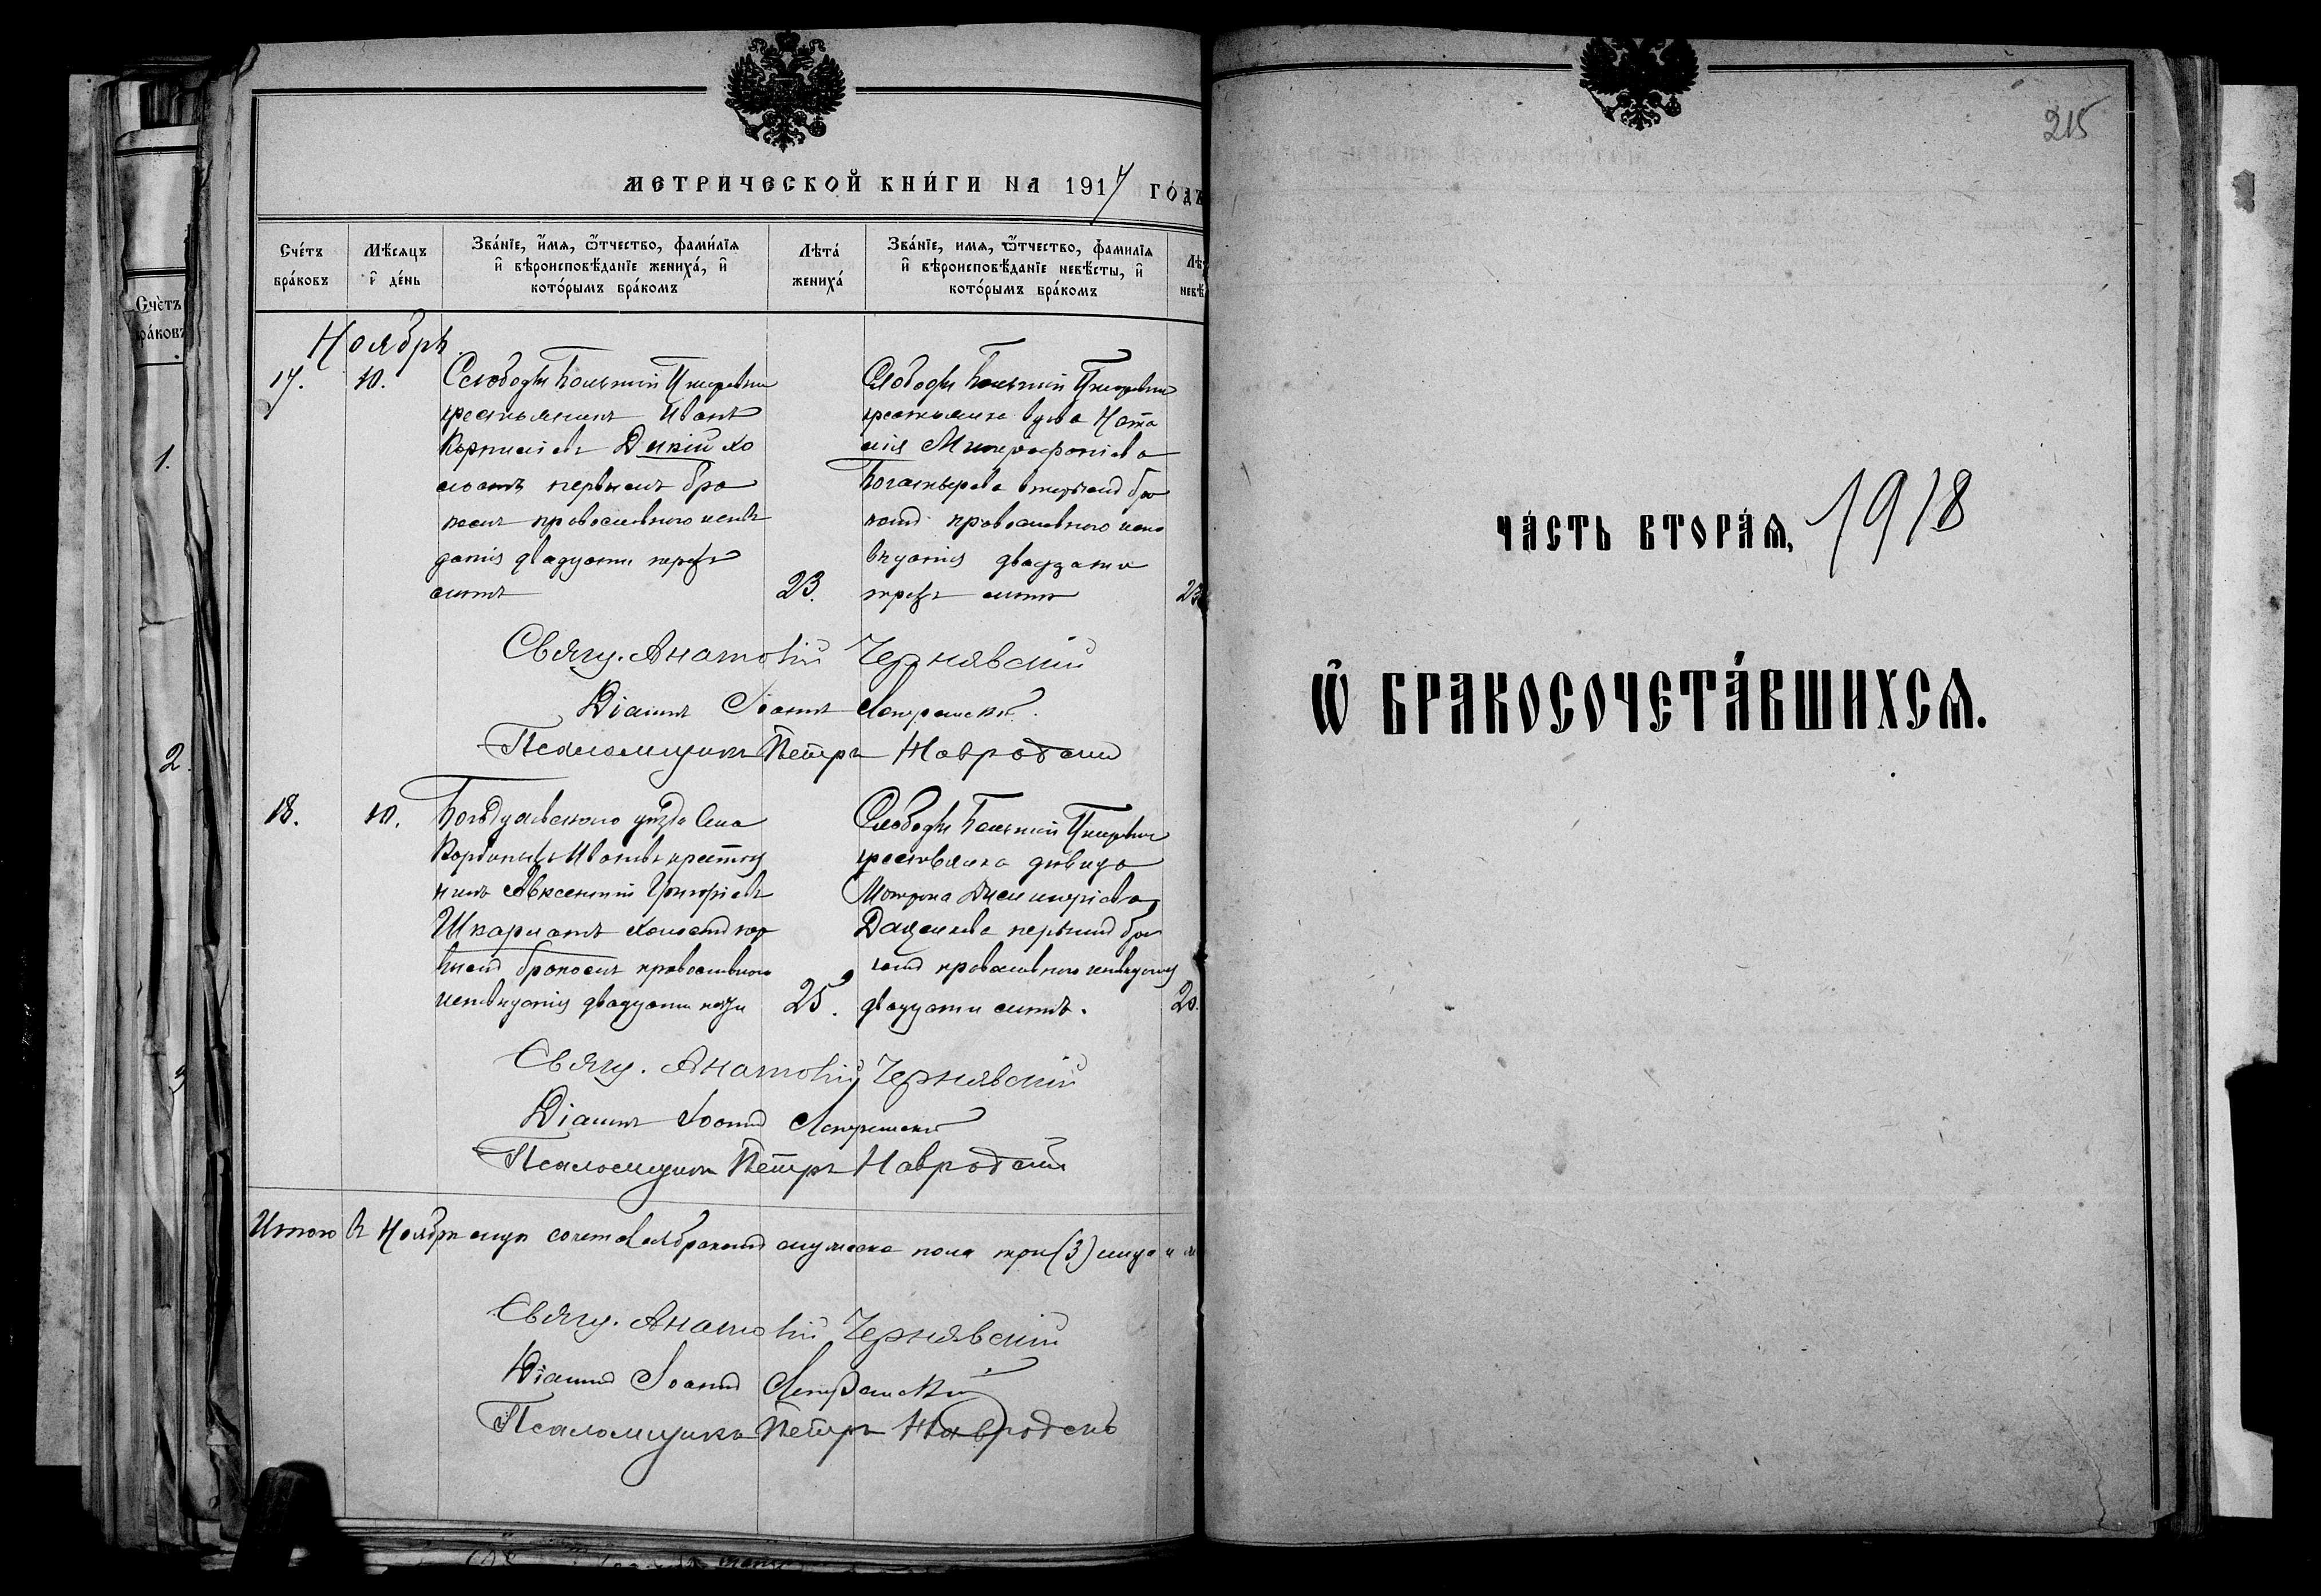 Счéтъ
брáковъ
1.
2.
3
МЕТРИЧЕСКОЙ КНИ́ГИ НА 1917 ГÓДЪ
Счéтъ
брáковъ
Мѣ́сяцъ
и҆ дéнь
Звáнїе, и҆́мѧ, ѻ҆́тчество, фами́лїѧ
и҆ вѣроисповѣ́данїе женихá, и҆
котóрымъ брáкомъ
Лѣтá
женихá
Звáнїе, имѧ, ѻ҆́тчество, фамилїѧ
и҆ вѣроисповѣ́данїе невѣ́сты, и҆
котóрымъ брáкомъ
Лѣ
невѣ
Ноябрь
17.
10.
Слободы Большой
крестьянинъ Иванъ
Дикій хо
первымъ бра
комъ православного испвѣ
данія двадцати трехъ
лѣтъ
23.
Слободы Большой
крестьянка вдова Ната
лія Митрофаніева
Богатырева вторымъ бра
комъ православного испо
вѣданія двадцати
трехъ лѣтъ
23
Свящ. Анатолій Чернявскій
Діаконъ Іоаннъ
Псаломщикъ Петръ Навродскій
18.
10.
уѣзда Села
Ивановъ крестья
нинъ Авксентій Григоріевъ
Шкарлатъ холостъ пер
вымъ бракомъ православного
испвѣданія двадцати пяти
25.
Слободы Большой
крестьянка дѣвица
Матрона Димитріева
Даценкова первымъ бра
комъ православного испвѣданія
двадцати лѣтъ.
20.
Свящ. Анатолій Чернявскій
Діаконъ Іоаннъ
Псаломщикъ Петръ Навродскій
Итого въ Ноябрѣ мцѣ бракомъ мужеска пола три (3) лица и
Свящ. Анатолій Чернявскій
Діаконъ Іоаннъ
Псаломщикъ Петръ Навродскъ
215
ЧÁСТЬ ВТОРÁѦ, 1918
Ѽ БРАКОСОЧЕТÁВШИХСѦ.